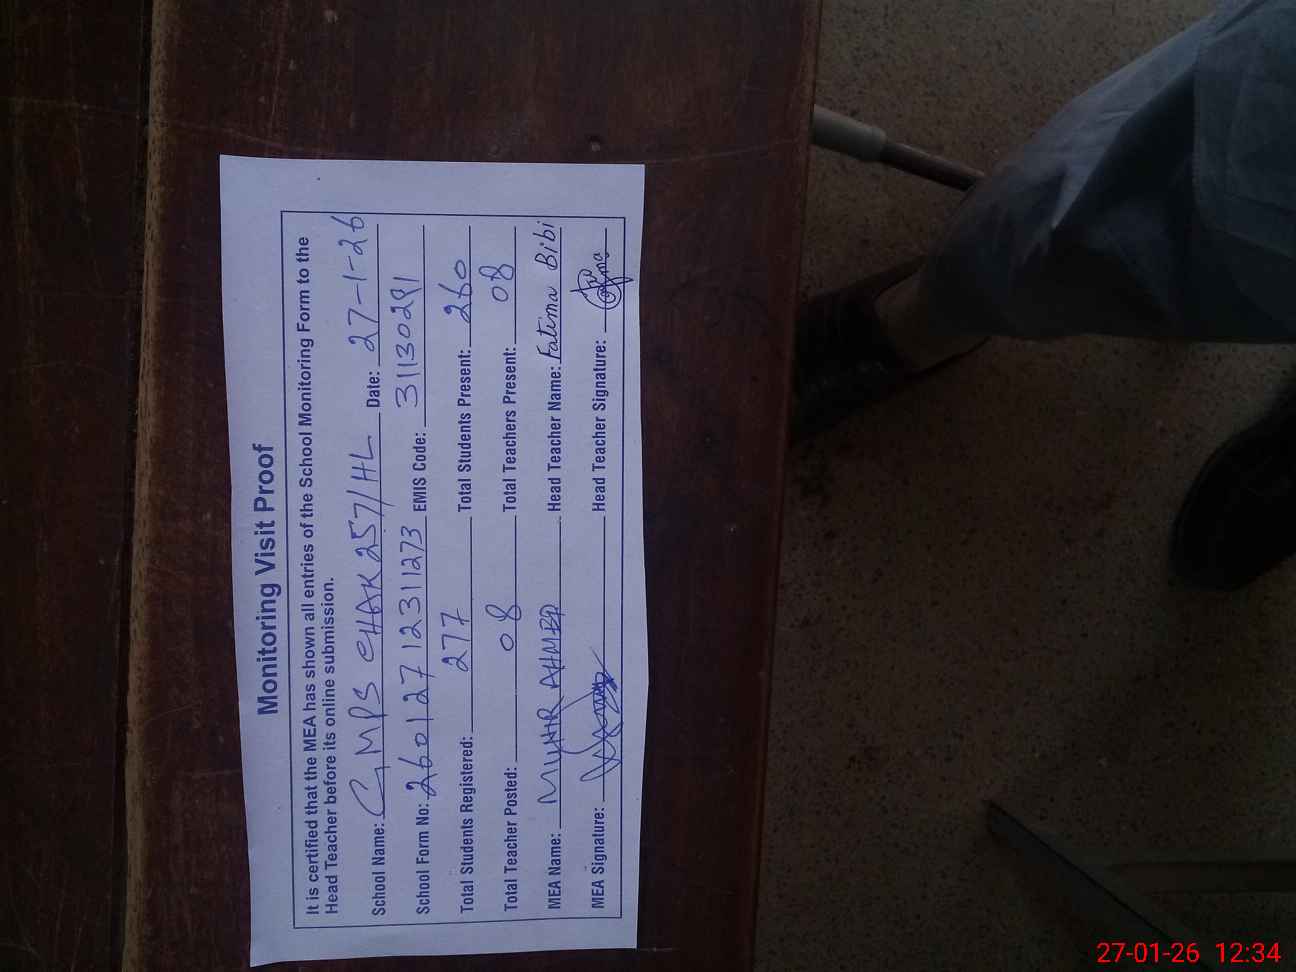 Monitoring Visit Proof
It is certified that the MEA has shown all entries of the School Monitoring Form to the
Head Teacher before its online submission.
School Name: GMPS CHAK 257/HL Date: 27-1-26
School Form No: 260127 1231273 EMIS Code: 31130291
Total Students Registered: 277 Total Students Present: 260
Total Teacher Posted: 08 Total Teachers Present: 08
MEA Name: MUNIR AHMED Head Teacher Name: Fatima Bibi
MEA Signature: Head Teacher Signature:
27-01-26 12:34